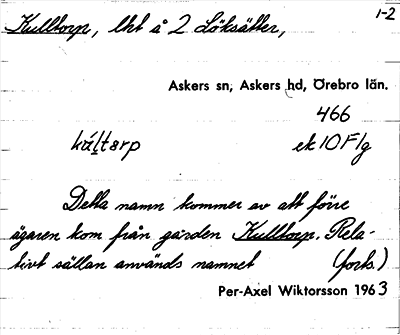 1-2
Kulltorp, lht å 2 Löksätter,
Askers sn, Askers hd, Örebro län.
466
kúltɘrp ek 10 F1g
Detta namn kommer av att förre
ägaren kom från gården Kulltorp. Rela-
tivt sällan används namnet (forts.)
Per-Axel Wiktorsson 1963